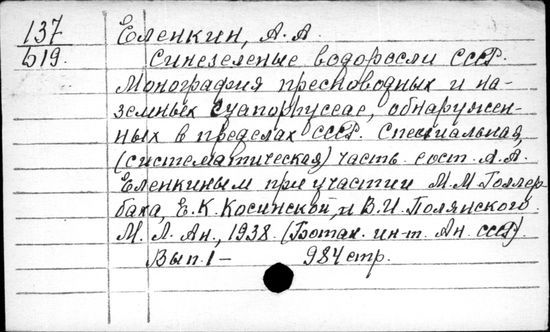 137
Б19.
Еленкин, А. А.
Синезеленые водоросли СССР.
Монография пресноводных и на-
земных Cyanophyceae, обнаружен-
ных в пределах СССР. Специальная,
(систематическая) часть сост. А. А.
Еленкиным при участии М. М. Голлер
баха, Е. К. Косинской, и В. И. Полянского.
М. Л. Ан., 1938. (Ботан. ин-т. Ан. СССР).
Вып. 1 – 984 стр.